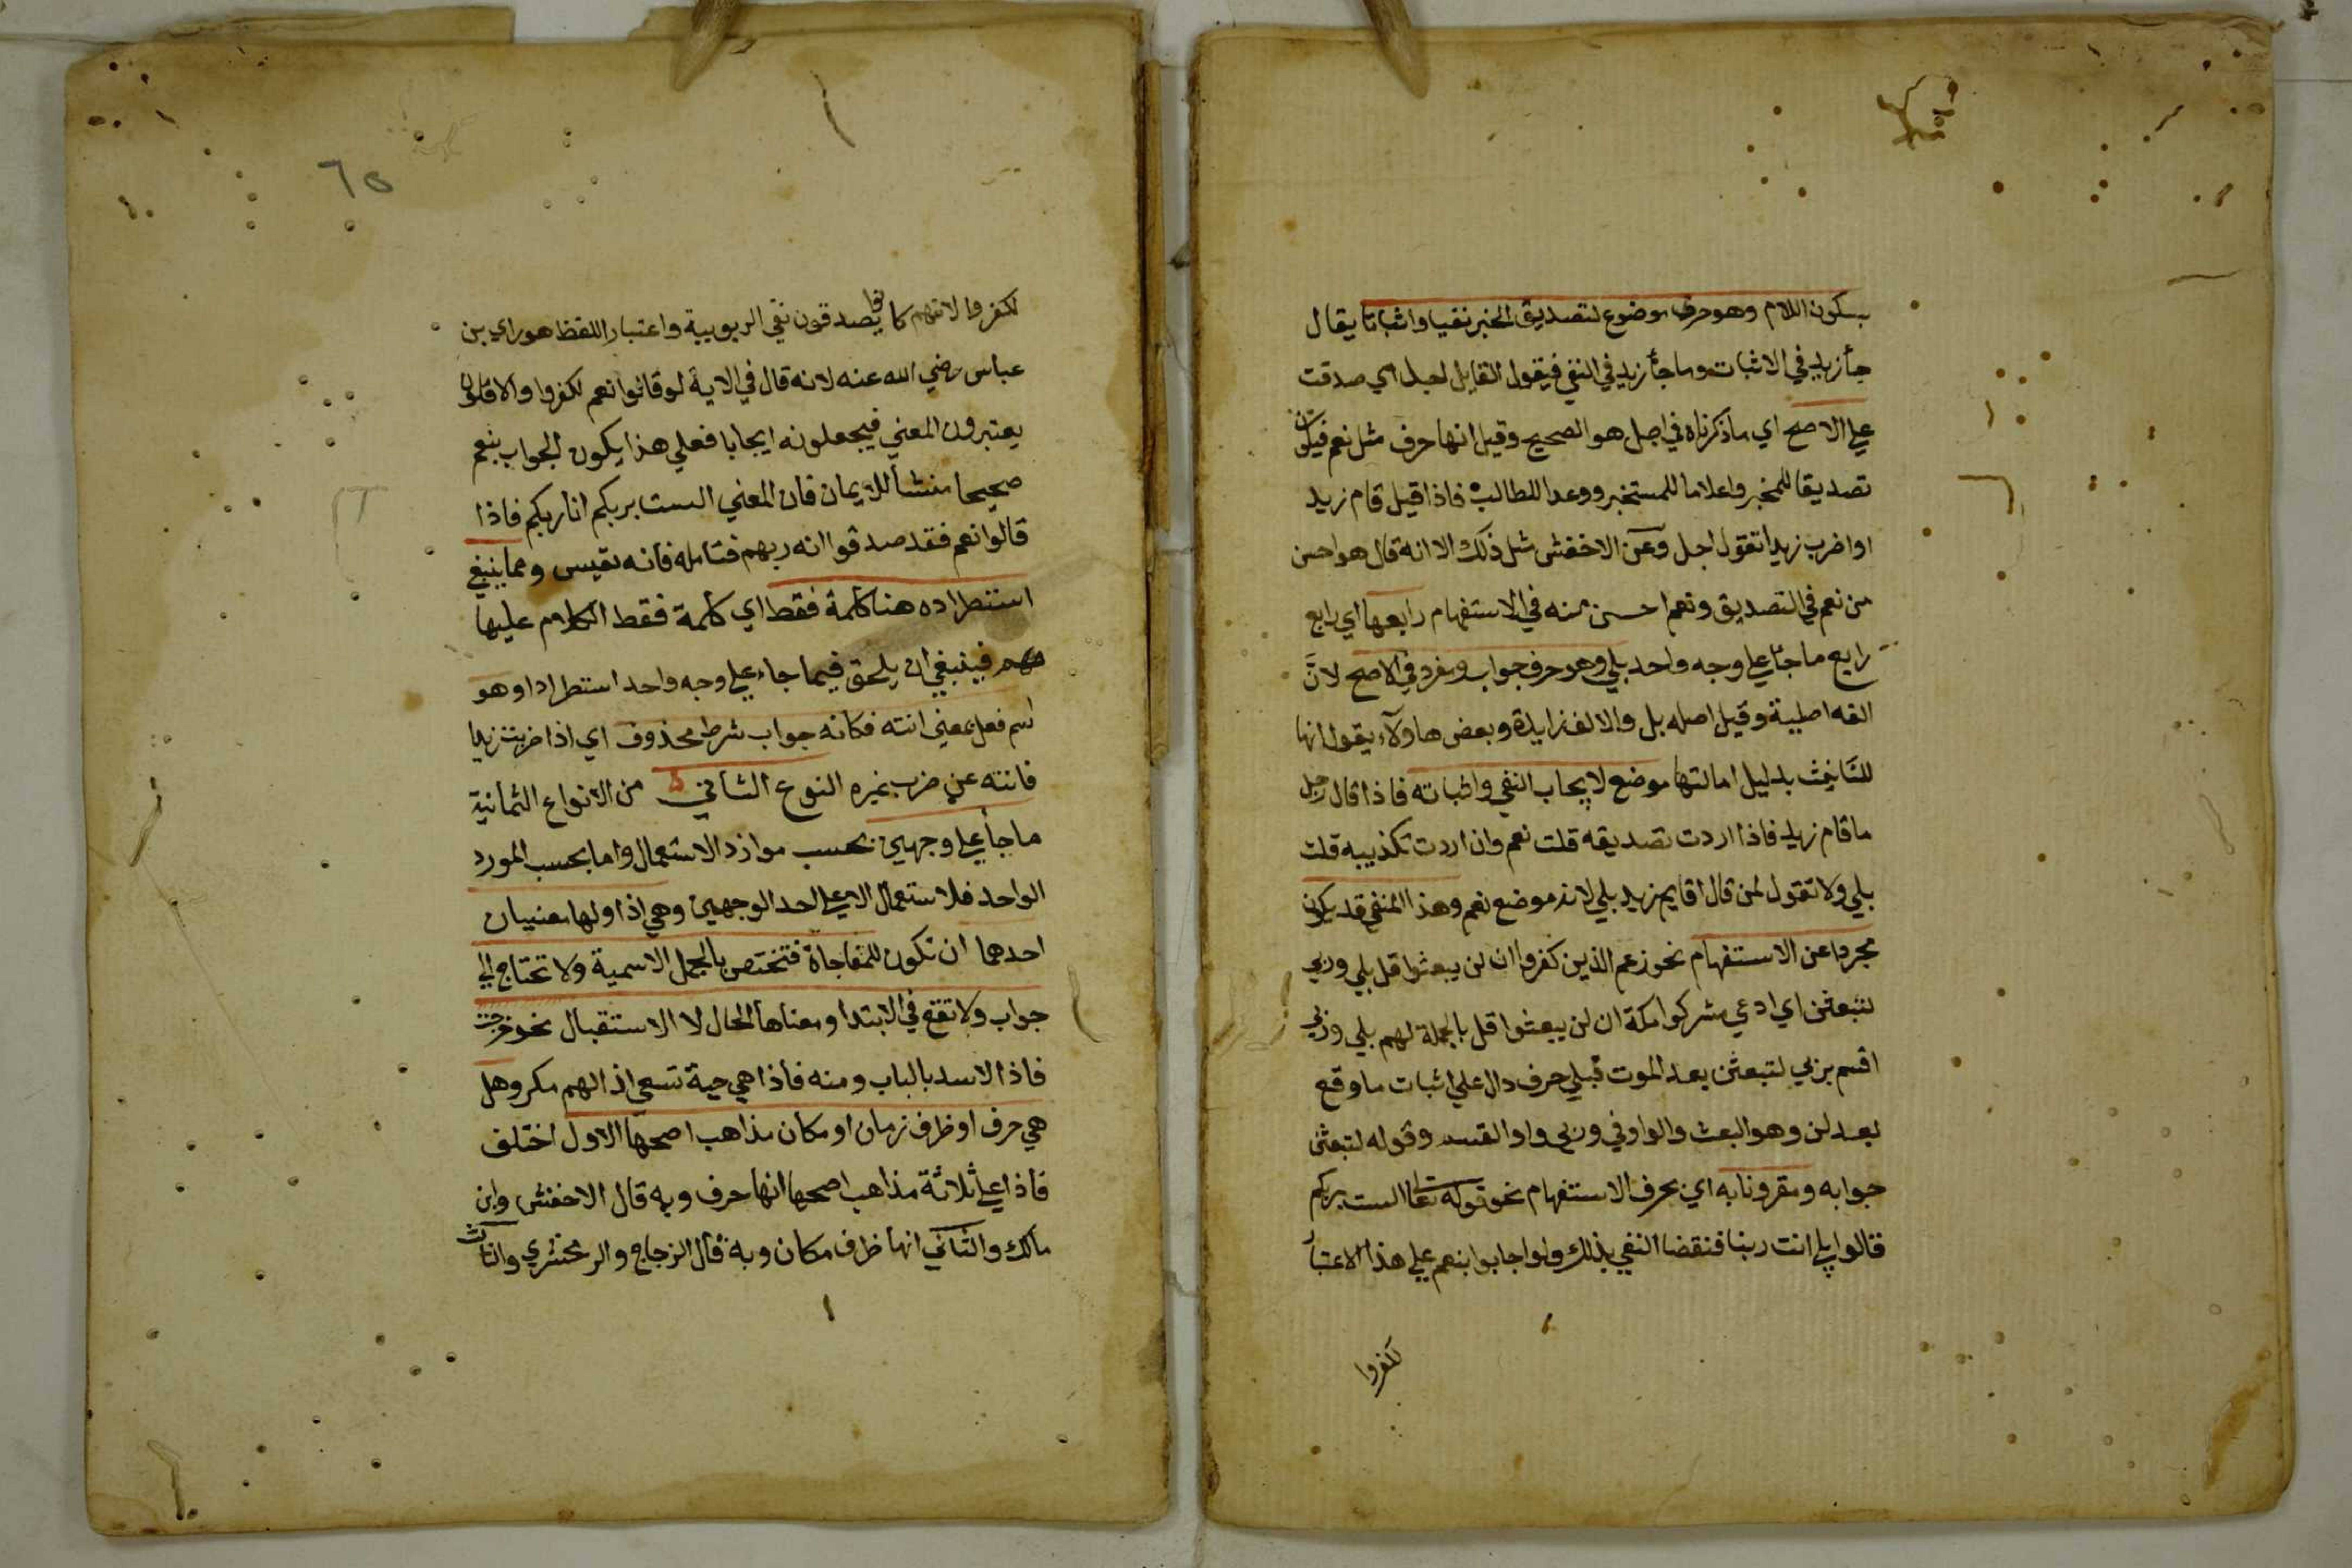 بسكون اللام وهو حرف موضوع لتصديق الخبر نفيا واثباتا يقال
جأ زيد في الاثبات وما جأ زيد في النفي فيقول القايل اجل اي صدقت
علي الاصح اي ما ذكرناه في اجل هو الصحيح وقيل انها حرف مثل نعم فيكون
تصديقا للمخبر واعلاما للمستخبر ووعدا للطالب فاذا قيل قام زيد
او اضرب زيدا تقول اجل وعن الاخفش مثل ذلك الا انه قال هو احسن
من نعم في التصديق ونعم احسن منه في الاستفهام رابعها اي رابع
رابع ما جأ علي وجه واحد بلي وهو حرف جواب ومفرد في الاصح لان
الفه اصلية وقيل اصله بل والالف زايدة وبعض هاولآء يقول انها
للتانيث بدليل امالتها موضع لايجاب النفي واثباته فاذا قال رجل
ما قام زيد فاذا اردت تصديقه قلت نعم وان اردت تكذيبه قلت
بلي ولا تقول لمن قال اقايم زيد بلي لانه موضع نعم وهذا المنفي قد يكون
مجردا عن الاستفهام نحو زعم الذين كفروا ان لن يبعثوا قل بلي وربي
لتبعثن اي ادعي مشركوا مكة ان لن يبعثوا قل بالجملة لهم بلي وربي
اقسم بربي لتبعثن بعد الموت فبلي حرف دال علي اثبات ما وقع
بعد لن وهو البعث والواو في وربي واو القسم وقوله لتبعثن
جوابه ومقرونا به اي بحرف الاستفهام نحو قوله تعا الست بربكم
قالوا بلي انت ربنا فنقضا النفي بذلك ولو اجابوا بنعم علي هذا الاعتبار
كفروا
٦٥
لكفروا لانهم كانوا يصدقون نفي الربوبية واعتبار اللفظ هو راي بن
عباس رضي الله عنه لانه قال في الاية لو قالوا نعم لكفروا والاقلون
يعتبرون المعني فيجعلونه ايجابا فعلي هذا يكون الجواب بنعم
صحيحا منشأ للايمان فان المعني الست بربكم انا ربكم فاذا
قالوا نعم فقد صدقوا انه ربهم فتامله فانه نفيس ومما ينبغي
استطراده هنا كلمة فقط اي كلمة فقط الكلام عليها
مهم فينبغي ان يلحق فيما جاء علي وجه واحد استطرادا وهو
اسم فعل بمعني انته فكانه جواب شرط محذوف اي اذا ضربت زيدا
فانته عن ضرب غيره النوع الثاني من الانواع الثمانية
ما جأ علي وجهين بحسب موارد الاستعمال واما بحسب المورد
الواحد فلا استعمال الا علي احد الوجهين وهي اذا ولها معنيان
احدهما ان تكون للمفاجاة فتختص بالجمل الاسمية ولا تحتاج الي
جواب ولا تقع في الابتدا ومعناها الحال لا الاستقبال نحو خرجت
فاذا الاسد بالباب ومنه فاذا هي حية تسعي اذا لهم مكر وهل
هي حرف او ظرف زمان او مكان مذاهب اصحها الاول اختلف
فاذا علي ثلاثة مذاهب اصحها انها حرف وبه قال الاخفش وابن
مالك والثاني انها ظرف مكان وبه قال الزجاج والزمخشري والثالث